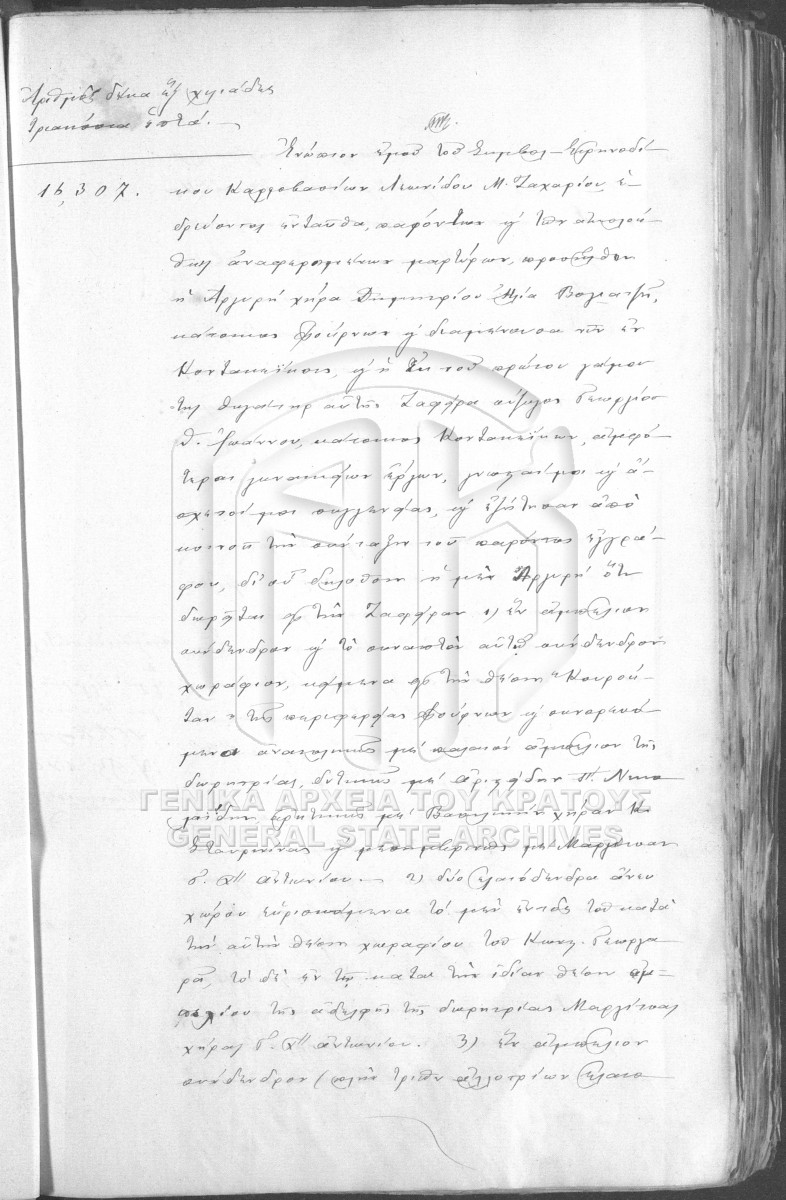 Ἀριθμὸς δέκα ἓξ χιλιάδες
τριακόσια ἑπτά.
16,307.
Ἐνώπιον ἐμοῦ τοῦ Συμβολ-Εἰρηνοδί-
κου Καρλοβασίων Λεωνίδου Μ. Ζαχαρίου, ἑ-
δρεύοντος ἐνταῦθα, παρόντων κ̀ τῶν ἀκολού-
θως ἀναφερομένων μαρτύρων, προσῆλθον
ἡ Ἀργυρῆ χήρα Δημητρίου Ἠλία Βογιατζῆ,
κάτοικος Φούρνων κ̀ διαμένουσα νῦν ἐν
Κοντακεΐκοις, κ̀ ἡ ἐκ τοῦ πρώτου γάμου
της θυγάτηρ αὐτῆς Ζαφύρα σύζυγος Γεωργίου
Θ. Ἰωάννου, κάτοικος Κοντακεΐκων, ἀμφό-
τεραι γυναικείων ἔργων, γνωσταί μοι κ̀ ἄ-
σχετοί μοι συγγενείας, κ̀ ἐζήτησαν ἀπὸ
κοινοῦ τὴν σύνταξιν τοῦ παρόντος ἐγγρά-
φου, δι' οὗ δηλοῦσιν ἡ μὲν Ἀργυρῆ ὅτι
δωρεῖται πρὸς τὴν Ζαφύραν 1) ἓν ἀμπέλιον
σύνδενδρον κ̀ τὸ συναπτὸν αὐτῷ σύνδενδρον
χωράφιον, κείμενα πρὸς τὴν θέσιν "Κουρού-
ταν" τῆς περιφερείας Φούρνων κ̀ συνορευό-
μενα ἀνατολικῶς μὲ παλαιὸν ἀμπέλιον τῆς
δωρητρίας, δυτικῶς μὲ Ἀριστείδην Π. Νικο-
λαΐδην, ἀρκτικῶς μὲ Βασιλικὴν χήραν Κ.
κ̀ μεσημβρινῶς μὲ Μαργίτσαν
Γ. Χ" Ἀντωνίου. — 2) δύο ἐλαιόδενδρα ἄνευ
χώρου εὑρισκόμενα τὸ μὲν ἐντὸς τοῦ κατὰ
τὴν αὐτὴν θέσιν χωραφίου τοῦ Κωνστ. Γεωργα-
ρᾶ, τὸ δὲ ἐν τῷ κατὰ τὴν ἰδίαν θέσιν ἀμ-
πελίου τῆς ἀδελφῆς τῆς δωρητρίας Μαργίτσας
χήρας Γ. Χ" Ἀντωνίου. 3) ἓν ἀμπέλιον
σύνδενδρον (πλὴν τριῶν ἀλλοτρίων ἐλαιο
ΓΕΝΙΚΑ ΑΡΧΕΙΑ ΤΟΥ ΚΡΑΤΟΥΣ
GENERAL STATE ARCHIVES